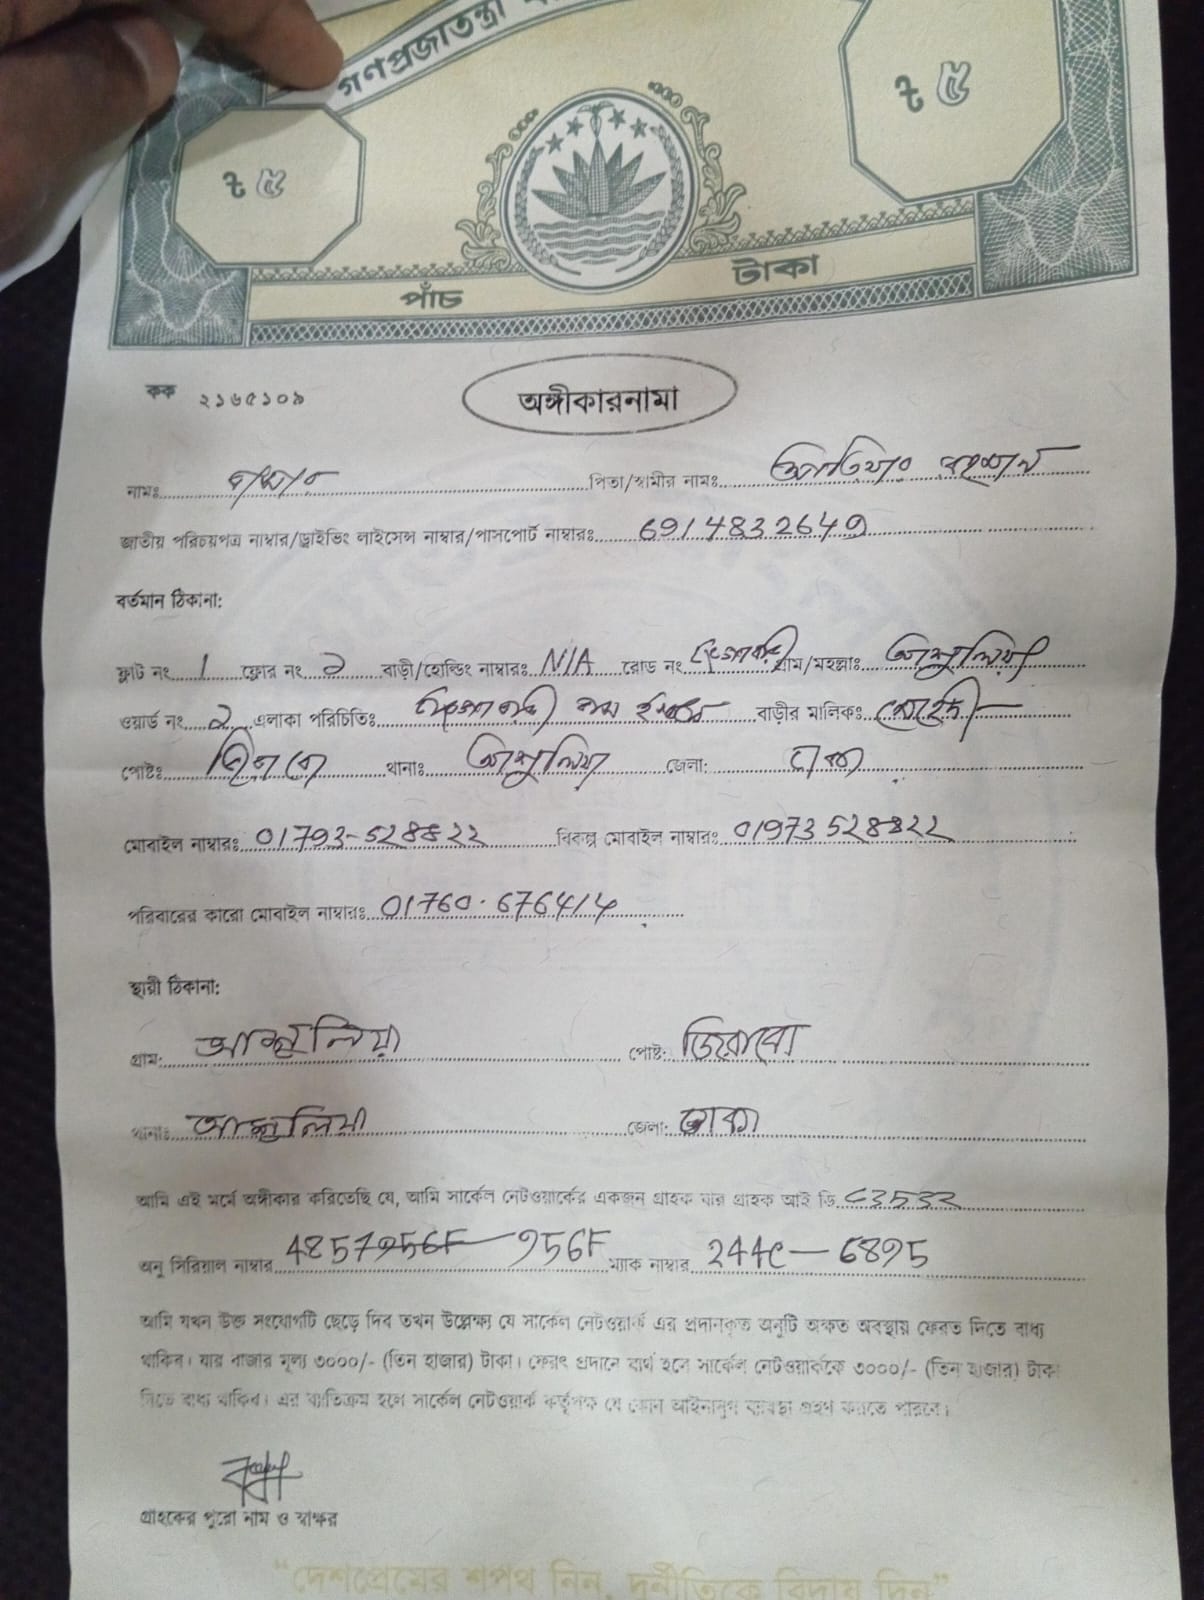 গণপ্রজাতন্ত্রী
৳ ৫
৳ ৫
পাঁচ টাকা
কক ২১৬৫১০৯
অঙ্গীকারনামা
নামঃ পিতা/স্বামীর নামঃ
জাতীয় পরিচয়পত্র নাম্বার/ড্রাইভিং লাইসেন্স নাম্বার/পাসপোর্ট নাম্বারঃ 6914832649
বর্তমান ঠিকানা:
ফ্লাট নং 1 ফ্লোর নং ২ বাড়ী/হোল্ডিং নাম্বারঃ N/A রোড নং গ্রাম/মহল্লাঃ আশুলিয়া
ওয়ার্ড নং ২ এলাকা পরিচিতিঃ বাড়ীর মালিকঃ
পোষ্টঃ জিরাবো থানাঃ আশুলিয়া জেলা: ঢাকা
মোবাইল নাম্বারঃ 01793-528822 বিকল্প মোবাইল নাম্বারঃ 01973528822
পরিবারের কারো মোবাইল নাম্বারঃ 01760-676414
স্থায়ী ঠিকানা:
গ্রাম: আশুলিয়া পোষ্ট: জিরাবো
থানাঃ আশুলিয়া জেলা: ঢাকা
আমি এই মর্মে অঙ্গীকার করিতেছি যে, আমি সার্কেল নেটওয়ার্কের একজন গ্রাহক যার গ্রাহক আই ডি C3532
অনু সিরিয়াল নাম্বার 4857956F 956F ম্যাক নাম্বার 244C-6895
আমি যখন উক্ত সংযোগটি ছেড়ে দিব তখন উল্লেক্ষ্য যে সার্কেল নেটওয়ার্ক এর প্রদানকৃত অনুটি অক্ষত অবস্থায় ফেরত দিতে বাধ্য
থাকিব। যার বাজার মূল্য ৩০০০/- (তিন হাজার) টাকা। ফেরৎ প্রদানে ব্যর্থ হলে সার্কেল নেটওয়ার্ককে ৩০০০/- (তিন হাজার) টাকা
দিতে বাধ্য থাকিব। এর ব্যতিক্রম হলে সার্কেল নেটওয়ার্ক কর্তৃপক্ষ যে কোন আইনানুগ ব্যবস্থা গ্রহণ করতে পারবে।
গ্রাহকের পুরো নাম ও স্বাক্ষর
“দেশপ্রেমের শপথ নিন, দুর্নীতিকে বিদায় দিন”